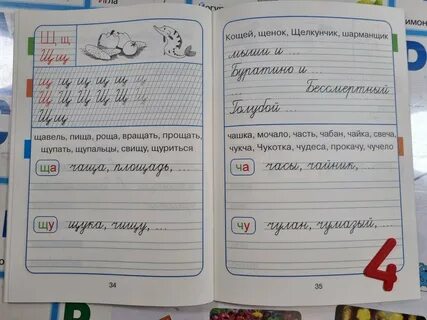 Щ щ
Щ щ
щ Щ щ Щ щ
щ Щ щ Щ щ
Щ щ
щавель, пища, роща, вращать, прощать,
щупать, щупальцы, свищу, щуриться
ща чаща, площадь, ...
щу щука, чищу, ...
34
Кощей, щенок, Щелкунчик, шарманщик
мыши и ...
Буратино и ...
... Бессмертный
Голубой ...
чашка, мочало, часть, чабан, чайка, свеча,
чукча, Чукотка, чудеса, прокачу, чучело
ча часы, чайник, ...
чу чулан, чумазый, ...
35
4